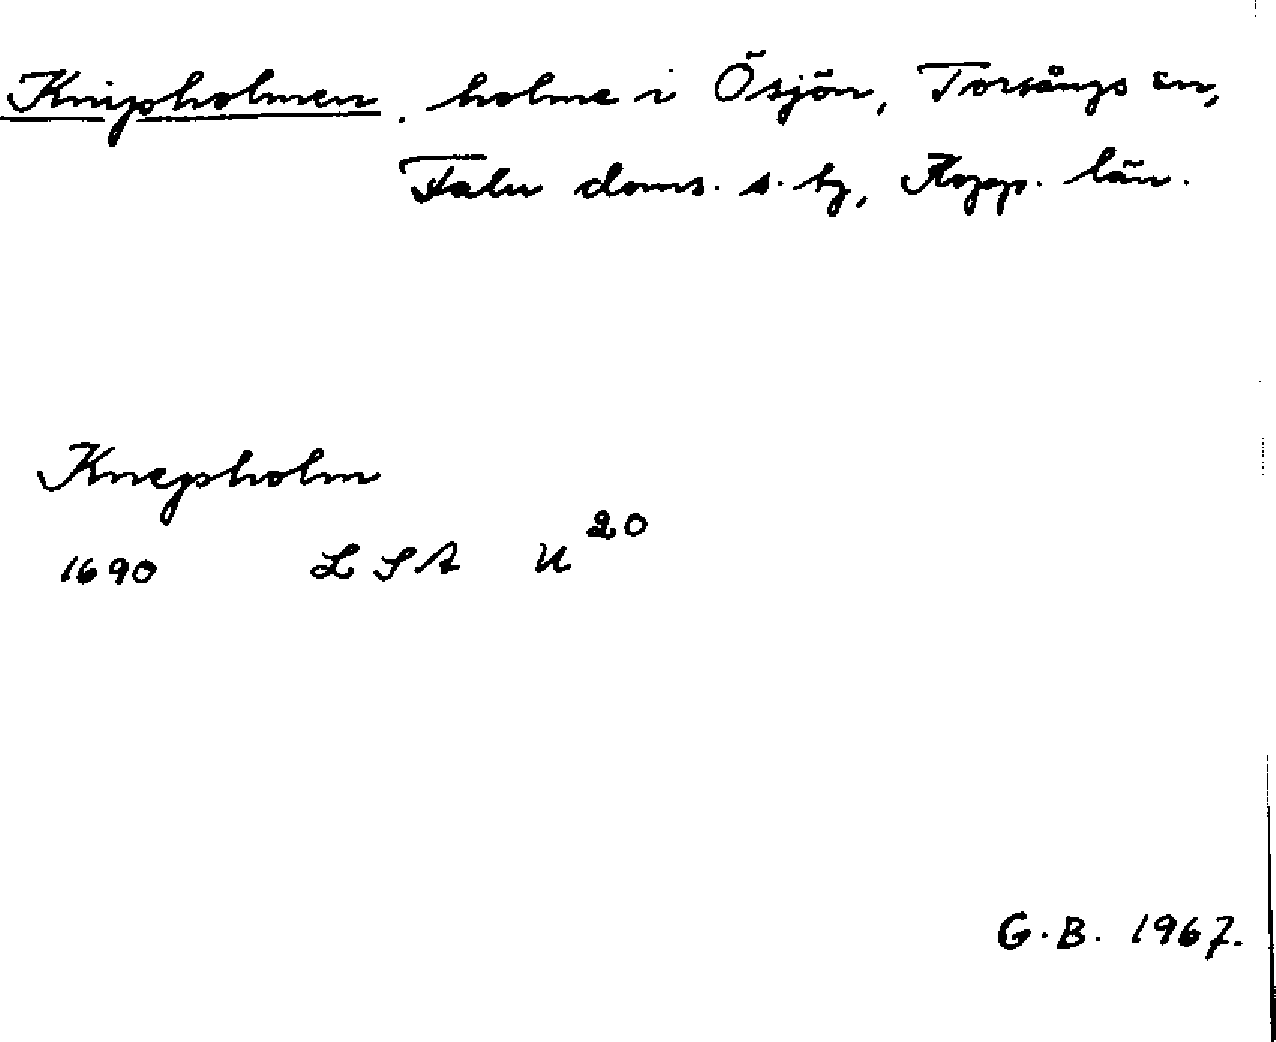 Knipholmen, holme i Ösjön, Torsångs sn,
Falu doms. s. tg, Kopp. län.
Knepholm
1690 LSA U 20
G.B. 1967.